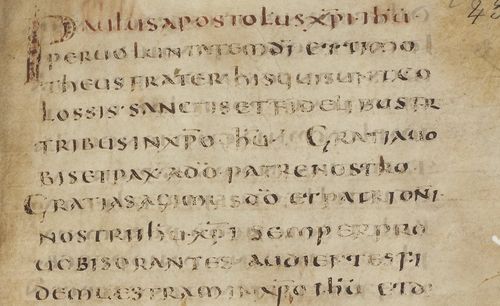 PAULUS APOSTOLUS XP̄I IHŪ
PER UOLUNTATEM DĪ ET TIMO
THEUS FRATER HIS QUI SUNT CO
LOSSIS SANCTIS ET FIDELIBUS FR
TRIBUS IN XP̄O IHŪ GRATIA UO
BIS ET PAX A DŌ PATRE NOSTRO
GRATIAS AGIMUS DŌ ET PATRI DNI
NOSTRI IHŪ XP̄I SEMPER PRO
UOBIS ORANTES AUDIENTES FI
DEM UESTRAM IN XP̄O IHŪ ET D